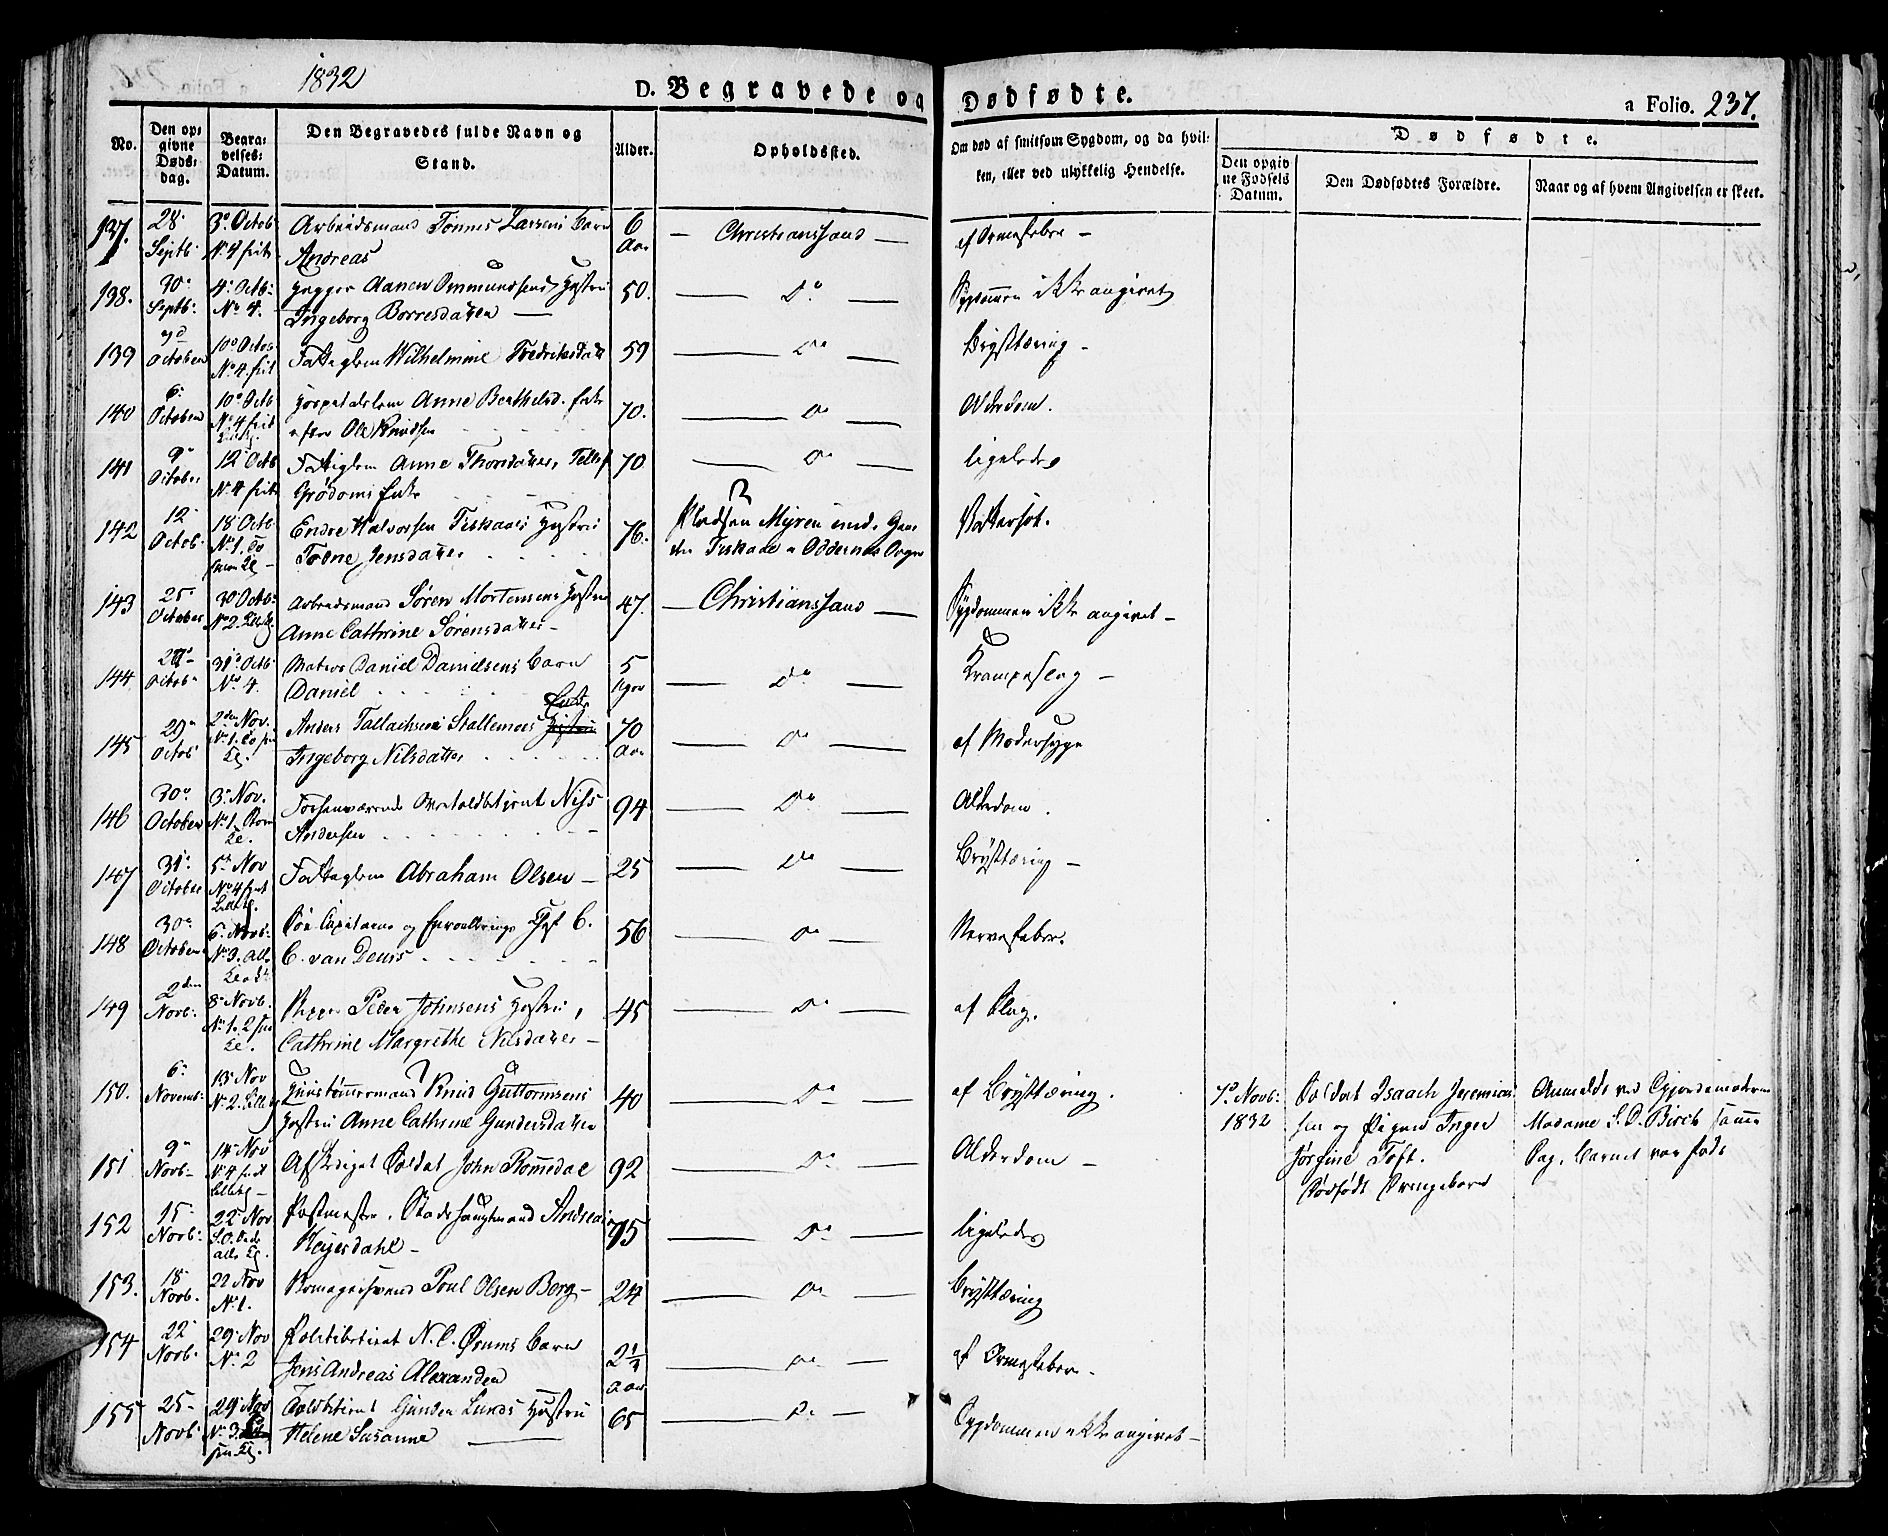 1832
D. Begravede og Dødfødte.
a Folio. 237.
No.
Den opgivne Døds-dag.
Begravelses-Datum.
Den Begravedes fulde Navn og Stand.
Alder.
Opholdssted.
Om død af smitsom Sygdom, og da hvilken, eller ved ulykkelig Hendelse.
Dødfødte.
Den opgivne Fødsels Datum.
Den Dødfødtes Forældre.
Naar og af hvem Angivelsen er skeet.
137. 28 Septb: 3 Octob No 4 frit Arbeidsmand Tønnes Larsens Barn 6 Aar — Christianssand — af Ormefeber —
Andreas
138. 30 Septb: 4 Octb: No 4. Aanen Ommundsens Hustru 50. — Do — Sygdommen ikke angivet
Ingeborg Borresdatter —
139 October 10 Octob No 4 frit Fattiglem Wilhelmine Fredriksdatt 59 — Do — Brysttæring —
140 6 October 10 Octb No 4 frit Hospitalslem Anne Berthelsd. Enke 70. — Do — Alderdom.
efter Ole Knudsen
141 9 October 12 Octb No 4 frit Fattiglem Anne Thorsdatter, Tellef 70 — Do — ligeledes
Grødoms Enke
142 12 Octob. 18 Octb No 1. Endre Halvorsen Tiskaaes Hustru 76. Pladsen Myren und. Gaarden Tiskaae i Oddernes Sogn Vattersot.
Tolne Jensdatter
143 25 October 30 Octob: No 2. Arbeidsmand Søren Mortensens Hustru 47. — Christianssand — Sygdommen ikke angivet —
Anne Cathrine Sørensdatter —
144 Octob 31 Octb: No 4. Matros Daniel Danielsens Barn 5 Uger — Do — Krampeslag —
Daniel
145 29 Octob 2den Nov. No 1. Anders Tallachsens Stallemoes Enke 70 Aar — Do — af Modersyge
Ingeborg Nilsdatter
146 30 October 3 Nov. No 1. Forhenværende Overtoldbetjent Niss 94 — Do — Alderdom.
Andersen
147 31 October 5 Nov No 4 frit Fattiglem Abraham Olsen — 25 — Do — Brysttæring —
148 30 October 6 Novb: No 3. Søe Capitaine og Enroullerings Chef C. 56 — Do — Nervefeber.
C. van Deurs
149 2den Novb: 8 Novb. No 1. Peder Johnsens Hustru, 45 — Do — af Slag.
Cathrine Margrethe Nilsdatter —
150. 6 Novemb: 13 Nov No 2. Huustømmermand Knud Guttormsens 40 — Do — af Brysttæring. 7 Novb: 1832 Soldat Isaach Jeremiassen og Pigen Inger Jørgine Toft. Dødfødt Drengebarn Anmeldt ved Gjordemoderen Madame S. D. Birch samme Dag, Barnet var født
Hustru Anne Cathrine Gundersdatter
151 9 Novb- 14 Nov No 4 frit Afskediget Soldat John Romedal 92 — Do — Alderdom —
152 15 Novb: 22 Nov Postmester, Stadshauptmand Andreas 75 — Do — ligeledes
Heyerdahl —
153. 18 Novb. 22 Nov No 1. Skomagersvend Poul Olsen Berg — 24 — Do — Brysttæring
154 22 Novb. 29 Nov No 2 Politibetient N. C. Ørums Barn 2½ Aar — Do — af Ormefeber.
Jens Andreas Alexander
155 25 Novb: 29 Nov No 3 Toldbetient Gunder Lunds Hustru 65 — Do — Sygdommen ikke angivet —
Helene Susanne —